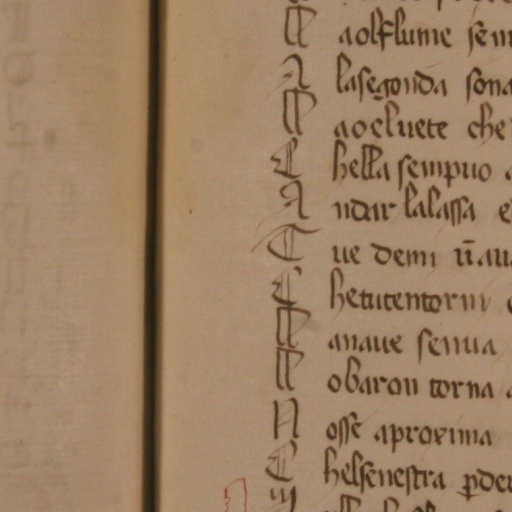 M aolflume sem
A lasegonda sona
M aocluete che
C hella sempuo
A ndar lalassa e
T ue demi ũ aua
C hetutentorni
M anaue senua
M obaron torna a
N osse aproxima
C helsenestra ꝑder